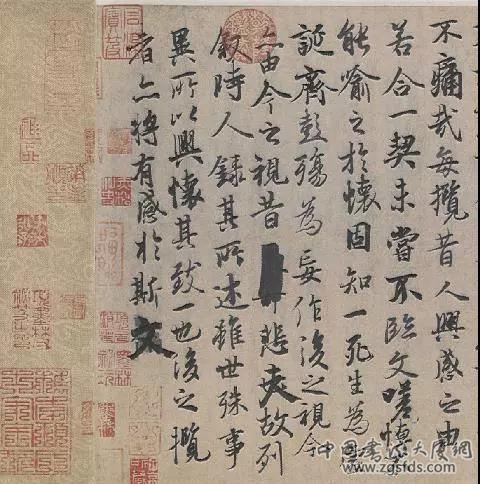 不痛哉每攬昔人興感之由
若合一契未嘗不臨文嗟悼不
能喻之於懷固知一死生為虛
誕齊彭殤為妄作後之視今
亦由今之視昔悲夫故列
敘時人錄其所述雖世殊事
異所以興懷其致一也後之攬
者亦將有感於斯文
中国书法大厦网
www.zgsfds.com